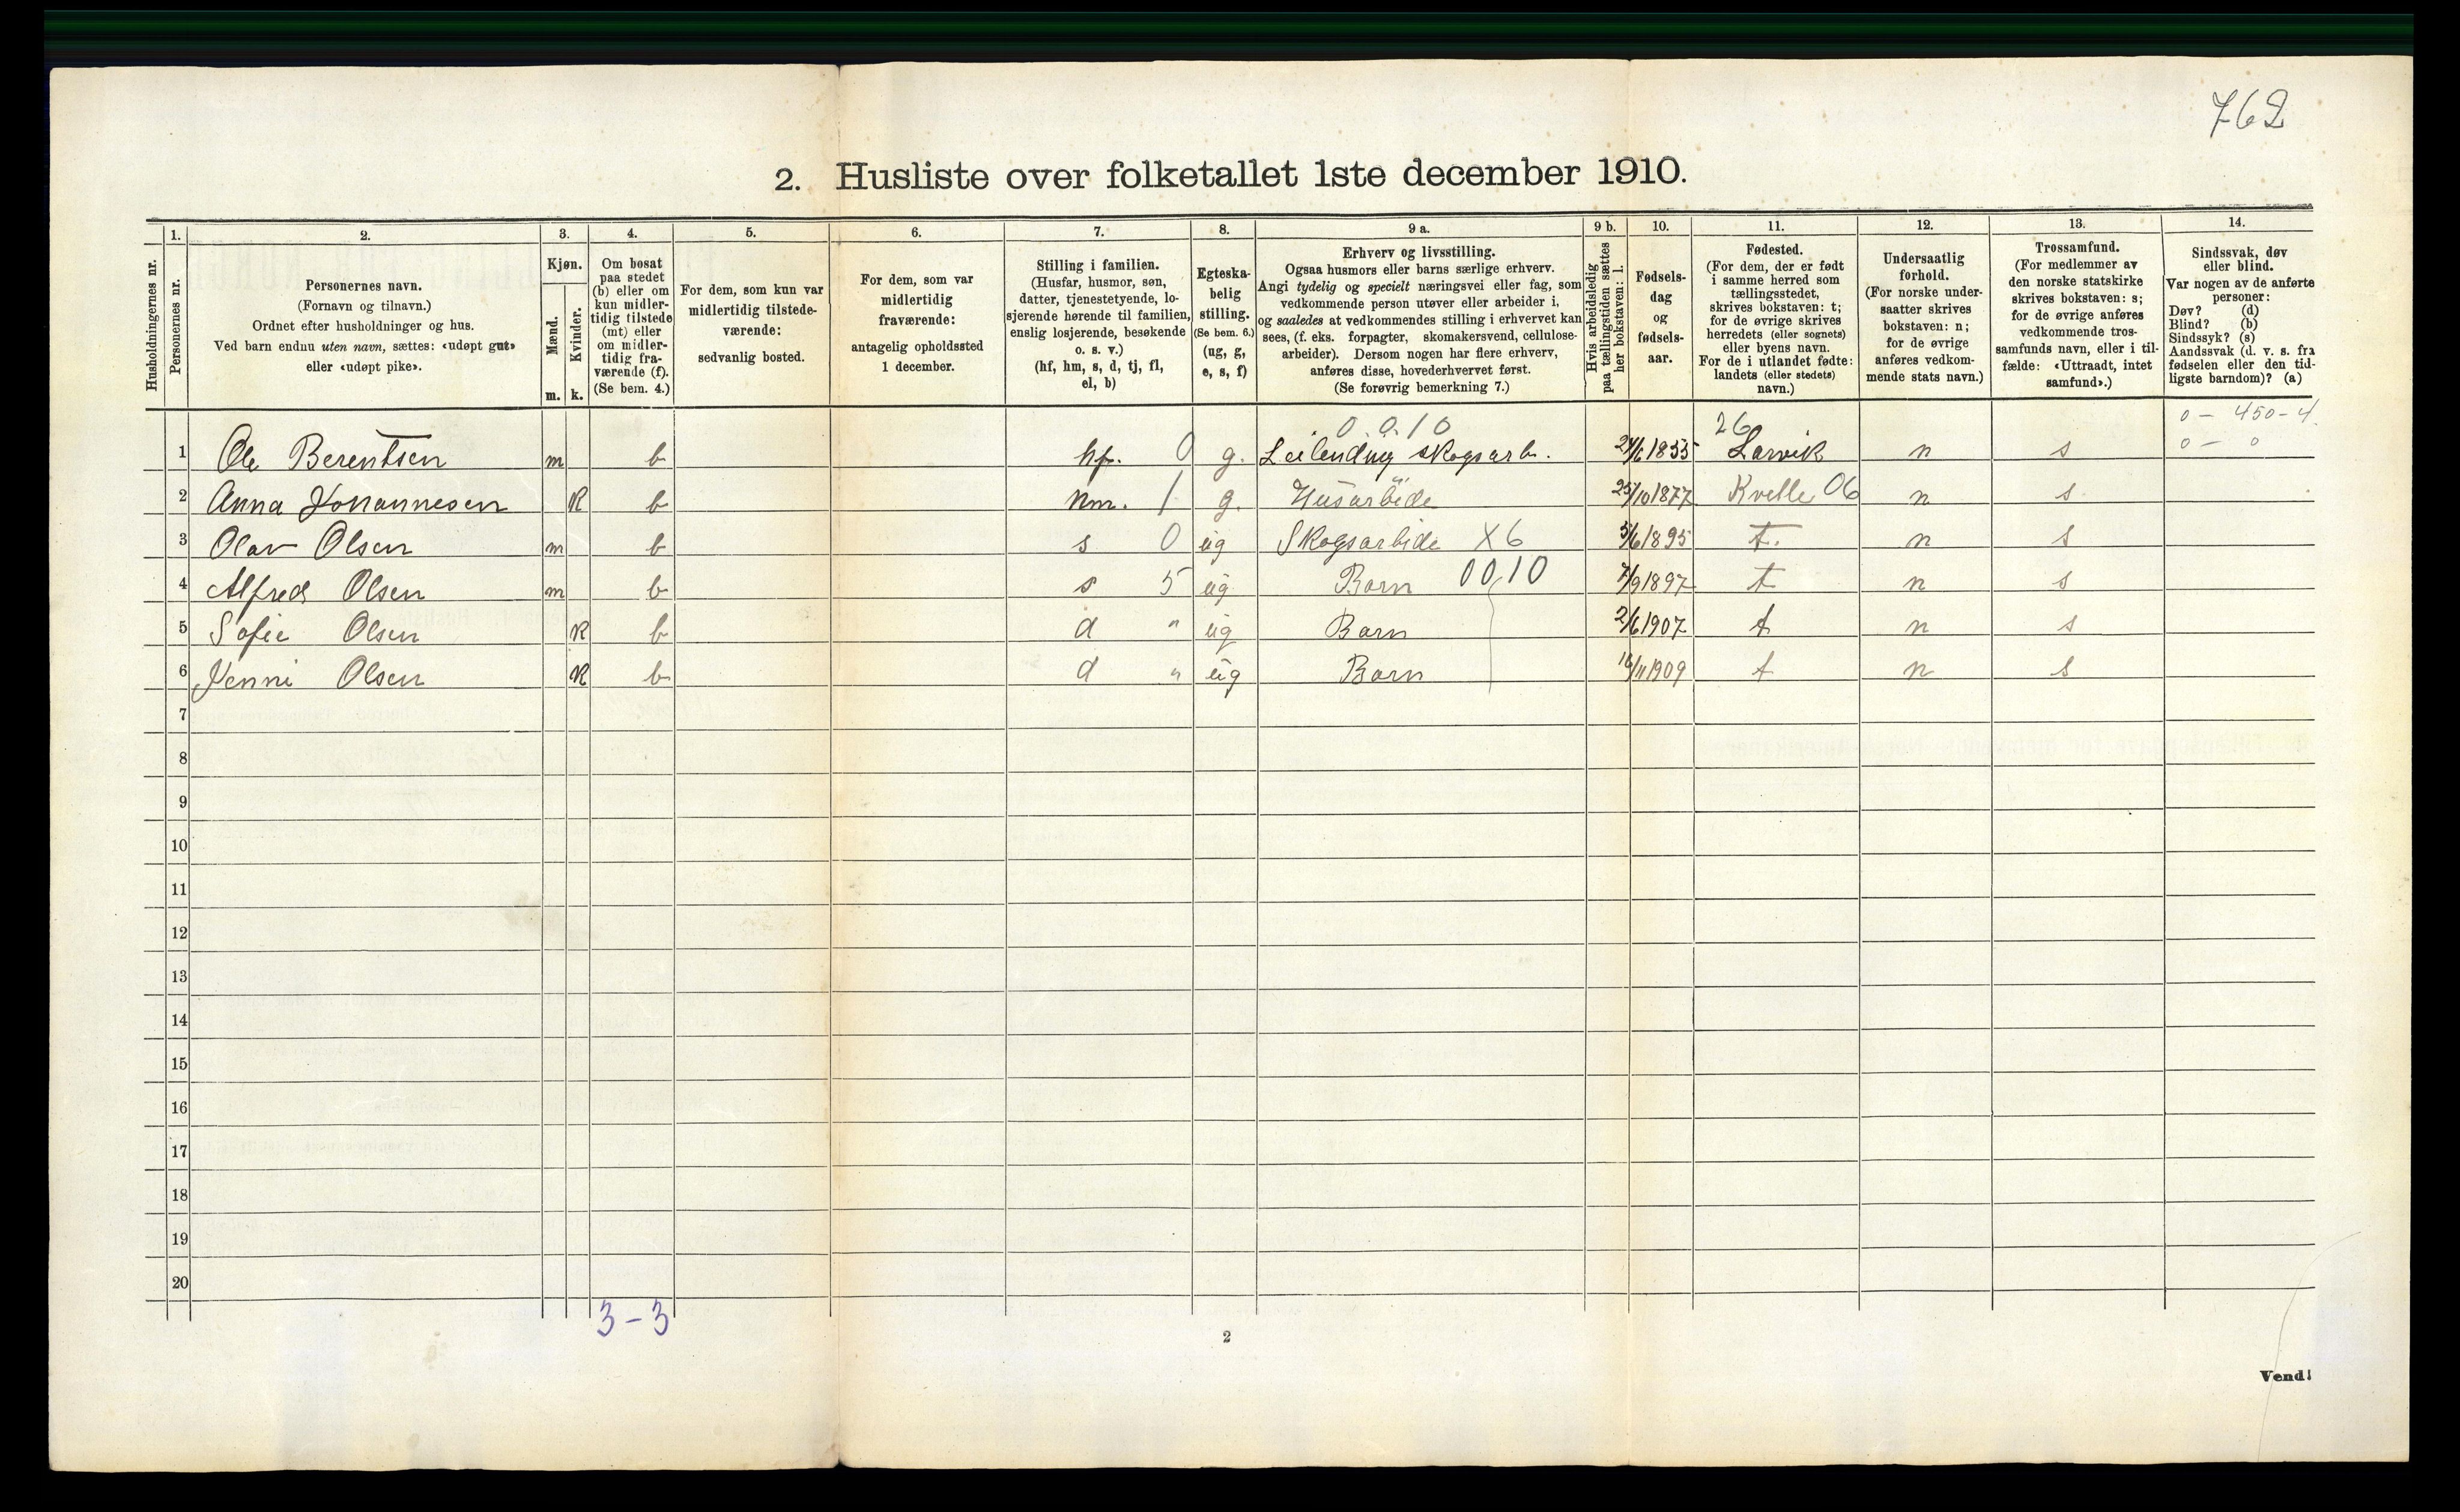 762
2. Husliste over folketallet 1ste december 1910.
Husholdningernes nr.
1.
Personernes nr.
2.
Personernes navn.
(Fornavn og tilnavn.)
Ordnet efter husholdninger og hus.
Ved barn endnu uten navn, sættes: «udøpt gut»
eller «udøpt pike».
3.
Kjøn.
Mænd.
Kvinder.
m. k.
4.
Om bosat
paa stedet
(b) eller om
kun midler-
tidig tilstede
(mt) eller
om midler-
tidig fra-
værende (f).
(Se bem. 4.)
5.
For dem, som kun var
midlertidig tilstede-
værende:
sedvanlig bosted.
6.
For dem, som var
midlertidig
fraværende:
antagelig opholdssted
1 december.
7.
Stilling i familien.
(Husfar, husmor, søn,
datter, tjenestetyende, lo-
sjerende hørende til familien,
enslig losjerende, besøkende
o. s. v.)
(hf, hm, s, d, tj, fl,
el, b)
8.
Egteska-
belig
stilling.
(Se bem. 6.)
(ug, g,
e, s, f)
9 a.
Erhverv og livsstilling.
Ogsaa husmors eller barns særlige erhverv.
Angi tydelig og specielt næringsvei eller fag, som
vedkommende person utøver eller arbeider i,
og saaledes at vedkommendes stilling i erhvervet kan
sees, (f. eks. forpagter, skomakersvend, cellulose-
arbeider). Dersom nogen har flere erhverv,
anføres disse, hovederhvervet først.
(Se forøvrig bemerkning 7.)
9 b.
Hvis arbeidsledig
paa tællingstiden sættes
her bokstaven: l.
10.
Fødsels-
dag
og
fødsels-
aar.
11.
Fødested.
(For dem, der er født
i samme herred som
tællingsstedet,
skrives bokstaven: t;
for de øvrige skrives
herredets (eller sognets)
eller byens navn.
For de i utlandet fødte:
landets (eller stedets)
navn.)
12.
Undersaatlig
forhold.
(For norske under-
saatter skrives
bokstaven: n;
for de øvrige
anføres vedkom-
mende stats navn.)
13.
Trossamfund.
(For medlemmer av
den norske statskirke
skrives bokstaven: s;
for de øvrige anføres
vedkommende tros-
samfunds navn, eller i til-
fælde: «Uttraadt, intet
samfund».)
14.
Sindssvak, døv
eller blind.
Var nogen av de anførte
personer:
Døv? (d)
Blind? (b)
Sindssyk? (s)
Aandssvak (d. v. s. fra
fødselen eller den tid-
ligste barndom)? (a)
0.0.10 26 0 - 450-4
1 Ole Berentsen m b hf. 0 g. Leilending skogsarb. 1855 Larvik n s 0 - 0
2 Anna Johannesen k b hm. 1 g. Husarbeide 25/10 1877 Kvelle 06 n s
3 Olav Olsen m b s 0 ug Skogsarbide X6 5/6 1895 t. n s
4 Alfred Olsen m b s 5 ug Barn 00,10 7/9 1897 t n s
5 Sofie Olsen k b d " ug Barn 2/6 1907 t n s
6 Jenni Olsen k b d " ug Barn 1909 t n s
7
8
9
10
11
12
13
14
15
16
17
18
19
20
3-3
2
Vend!